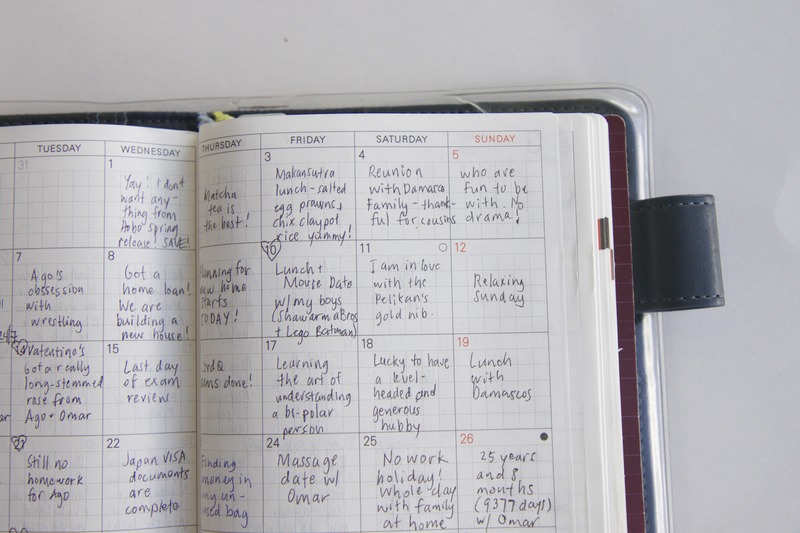 TUESDAY
WEDNESDAY
THURSDAY
FRIDAY
SATURDAY
SUNDAY
31
1
Yay! I don't
want any-
thing from
Hobo spring
release! SAVE!
Matcha
tea is
the best!
3
Makansutra
lunch - salted
egg prawns,
chix claypot
rice yummy!
4
Reunion
with Damasco
Family - thank-
ful for cousins
5
who are
fun to be
with. No
drama!
7
Ago's
obsession
with
wrestling
8
Got a
home loan!
We are
building a
new house!
anning for
new home
starts
TODAY!
10
Lunch +
Mouse Date
w/ my boys
(Shawarma Bros
+ Lego Batman)
11
I am in love
with the
Pelikan's
gold nib.
12
Relaxing
Sunday
14
Valentine's
got a really
long-stemmed
rose from
Ago + Omar
15
Last day
of exam
review
3rd Q
ms done!
17
Learning
the art of
understanding
a bi-polar
person
18
Lucky to have
a level-
headed and
generous
hubby
19
Lunch
with
Damascos
21
Still no
homework
for Ago
22
Japan VISA
documents
are
complete
Finding
money in
my un-
used bag
24
Massage
date w/
Omar
25
No work
holiday!
Whole day
with family
at home
26
25 years
and 8
months
(9377 days)
w/ Omar